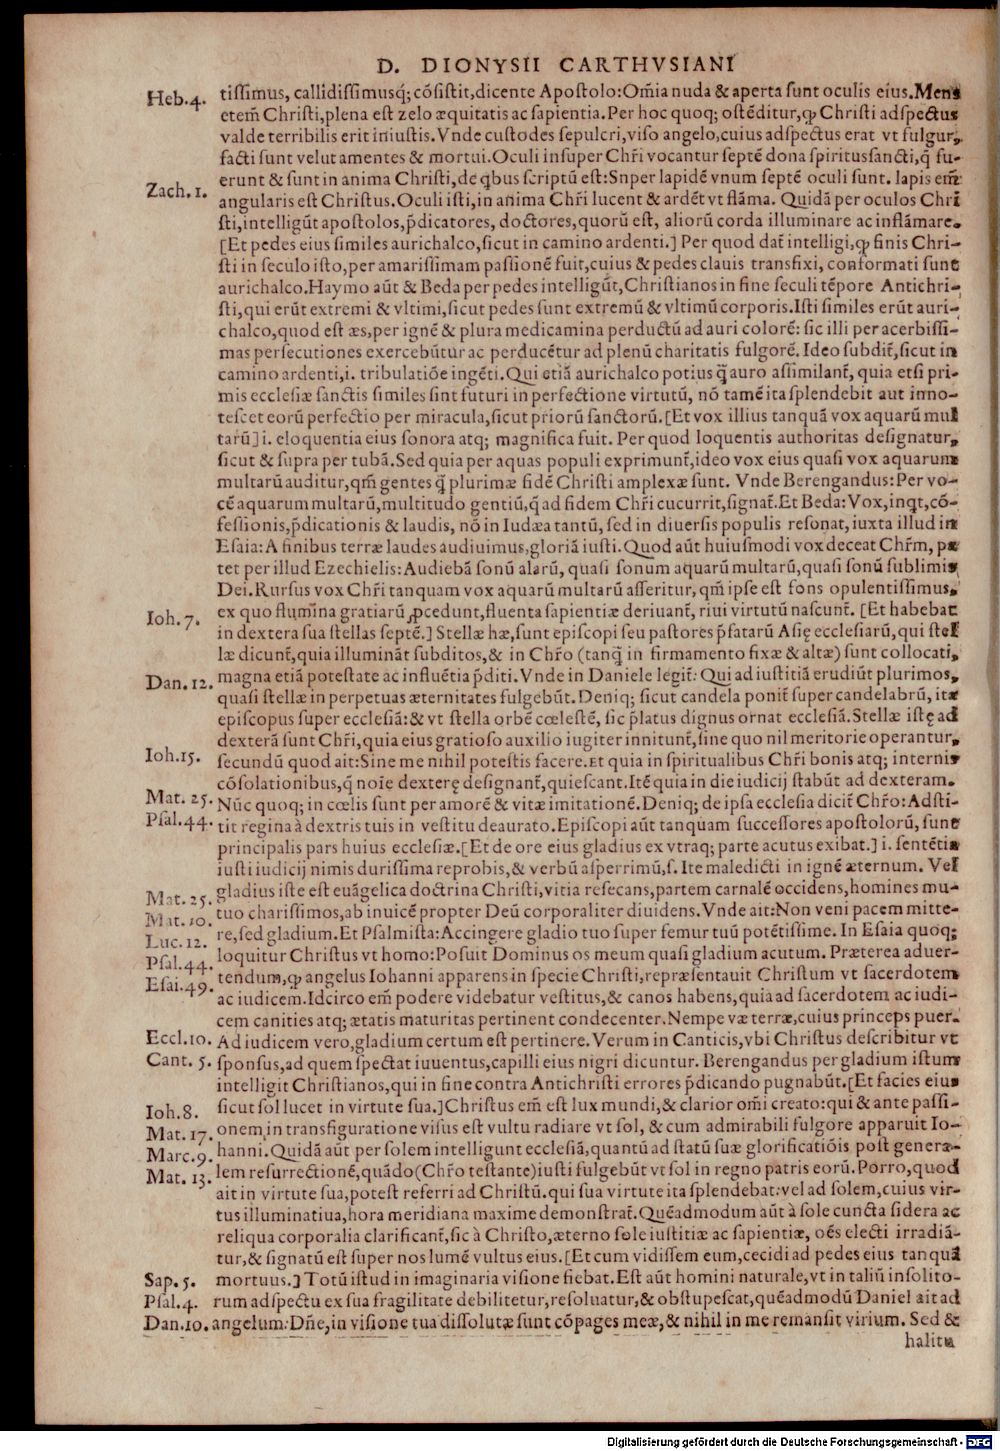 D. DIONYSII CARTHVSIANI
Heb.4. tissimus, callidissimusq́; cõsistit,dicente Apostolo:Om̃ia nuda & aperta sunt oculis eius.Mens
etem̃ Christi,plena est zelo æquitatis ac sapientia.Per hoc quoq; ostẽditur,ꝙ Christi adspectus
valde terribilis erit iniustis.Vnde custodes sepulcri,viso angelo,cuius adspectus erat vt fulgur,
facti sunt velut amentes & mortui.Oculi insuper Chr̃i vocantur septẽ dona spiritussancti,q̃ fu-
Zach.1. erunt & sunt in anima Christi,de q̇bus scriptũ est:Snper lapidẽ vnum septẽ oculi sunt. lapis em̃
angularis est Christus.Oculi isti,in anima Chr̃i lucent & ardẽt vt flãma. Quidã per oculos Chri
sti,intelligũt apostolos,p̃dicatores, doctores,quorũ est, aliorũ corda illuminare ac inflãmare.
[Et pedes eius similes aurichalco,sicut in camino ardenti.] Per quod dat̃ intelligi,ꝙ finis Chri-
sti in seculo isto,per amarissimam passionẽ fuit,cuius & pedes clauis transfixi, conformati sunt
aurichalco.Haymo aũt & Beda per pedes intelligũt,Christianos in fine seculi tẽpore Antichri-
sti,qui erũt extremi & vltimi,sicut pedes sunt extremũ & vltimũ corporis.Isti similes erũt auri-
chalco,quod est æs,per ignẽ & plura medicamina perductũ ad auri colorẽ: sic illi per acerbissi-
mas persecutiones exercebũtur ac perducẽtur ad plenũ charitatis fulgorẽ. Ideo subdit̃,sicut in
camino ardenti,i. tribulatiõe ingẽti.Qui etiã aurichalco potius q̃ auro assimilant̃, quia etsi pri-
mis ecclesiæ sanctis similes sint futuri in perfectione virtutũ, nõ tamẽ ita splendebit aut inno-
tescet eorũ perfectio per miracula,sicut priorũ sanctorũ.[Et vox illius tanquã vox aquarũ mul
tarũ] i. eloquentia eius sonora atq; magnifica fuit. Per quod loquentis authoritas designatur,
sicut & supra per tubã.Sed quia per aquas populi exprimunt̃,ideo vox eius quasi vox aquarum
multarũ auditur,qm̃ gentes q̃ plurimæ fidẽ Christi amplexæ sunt. Vnde Berengandus:Per vo-
cẽ aquarum multarũ,multitudo gentiũ,q̃ ad fidem Chr̃i cucurrit,signat̃.Et Beda:Vox,inq̇t,cõ-
fessionis,p̃dicationis & laudis, nõ in Iudæa tantũ, sed in diuersis populis resonat, iuxta illud in
Esaia:A finibus terræ laudes audiuimus,gloriã iusti.Quod aũt huiusmodi vox deceat Chr̃m, pa
tet per illud Ezechielis:Audiebã sonũ alarũ, quasi sonum aquarũ multarũ,quasi sonũ sublimis
Dei. Rursus vox Chr̃i tanquam vox aquarũ multarũ asseritur, qm̃ ipse est fons opulentissimus,
Ioh.7. ex quo flumina gratiarũ ꝓcedunt,fluenta sapientiæ deriuant̃, riui virtutũ nascunt̃. [Et habebat
in dextera sua stellas septẽ.] Stellæ hæ,sunt episcopi seu pastores p̃fatarũ Asię ecclesiarũ,qui stel
læ dicunt̃,quia illuminãt subditos,& in Chr̃o (tanq̃ in firmamento fixæ & altæ) sunt collocati,
Dan.12. magna etiã potestate ac influẽtia p̃diti. Vnde in Daniele legit̃: Qui ad iustitiã erudiũt plurimos,
quasi stellæ in perpetuas æternitates fulgebũt. Deniq; sicut candela ponit̃ super candelabrũ, ita
episcopus super ecclesiã:& vt stella orbẽ cœlestẽ, sic p̃latus dignus ornat ecclesiã.Stellæ istę ad
dexterã sunt Chr̃i,quia eius gratioso auxilio iugiter innitunt̃,sine quo nil meritorie operantur,
Ioh.15. secundũ quod ait:Sine me nihil potestis facere.ET quia in spiritualibus Chr̃i bonis atq; internis
cõsolationibus,q̃ noĩe dexterę designant̃,quiescant.Itẽ quia in die iudicij stabũt ad dexteram.
Mat. 25. Nũc quoq; in cœlis sunt per amorẽ & vitæ imitationẽ.Deniq; de ipsa ecclesia dicit̃ Chr̃o:Adsti-
Psal.44. tit regina à dextris tuis in vestitu deaurato.Episcopi aũt tanquam successores apostolorũ, sunt
principalis pars huius ecclesiæ.[Et de ore eius gladius ex vtraq; parte acutus exibat.] i. sentẽtia
iusti iudicij nimis durissima reprobis,& verbũ asperrimũ,s. Ite maledicti in ignẽ æternum. Vel
Mat. 25. gladius iste est euãgelica doctrina Christi,vitia resecans,partem carnalẽ occidens,homines mu-
Mat.10. tuo charissimos,ab inuicẽ propter Deũ corporaliter diuidens.Vnde ait:Non veni pacem mitte-
Luc.12. re,sed gladium.Et Psalmista:Accingere gladio tuo super femur tuũ potẽtissime. In Esaia quoq;
Psal.44. loquitur Christus vt homo:Posuit Dominus os meum quasi gladium acutum. Præterea aduer-
Esai.49. tendum,ꝙ angelus Iohanni apparens in specie Christi,repræsentauit Christum vt sacerdotem
ac iudicem.Idcirco em̃ podere videbatur vestitus,& canos habens,quia ad sacerdotem ac iudi-
cem canities atq; ætatis maturitas pertinent condecenter.Nempe væ terræ,cuius princeps puer.
Eccl.10. Ad iudicem vero,gladium certum est pertinere. Verum in Canticis,vbi Christus describitur vt
Cant. 5. sponsus,ad quem spectat iuuentus,capilli eius nigri dicuntur. Berengandus per gladium istum
intelligit Christianos,qui in fine contra Antichristi errores p̃dicando pugnabũt.[Et facies eius
Ioh.8. sicut sol lucet in virtute sua.]Christus em̃ est lux mundi,& clarior om̃i creato:qui & ante passi-
Mat.17. onem in transfiguratione visus est vultu radiare vt sol, & cum admirabili fulgore apparuit Io-
Marc.9. hanni.Quidã aũt per solem intelligunt ecclesiã,quantũ ad statũ suæ glorificatiõis post genera-
Mat. 13. lem resurrectionẽ,quãdo(Chr̃o testante)iusti fulgebũt vt sol in regno patris eorũ.Porro,quod
ait in virtute sua,potest referri ad Christũ.qui sua virtute ita splendebat:vel ad solem,cuius vir-
tus illuminatiua,hora meridiana maxime demonstrat̃.Quẽadmodum aũt à sole cuncta sidera ac
reliqua corporalia clarificant̃,sic à Christo,æterno sole iustitiæ ac sapientiæ, oẽs electi irradiã-
tur,& signatũ est super nos lumẽ vultus eius.[Et cum vidissem eum,cecidi ad pedes eius tanquã
Sap. 5. mortuus.] Totũ istud in imaginaria visione fiebat.Est aũt homini naturale,vt in taliũ insolito-
Psal.4. rum adspectu ex sua fragilitate debilitetur,resoluatur,& obstupescat,quẽadmodũ Daniel ait ad
Dan.10. angelum:Dñe,in visione tua dissolutæ sunt cõpages meæ,& nihil in me remansit virium. Sed &
halitu
Digitalisierung gefördert durch die Deutsche Forschungsgemeinschaft - DFG